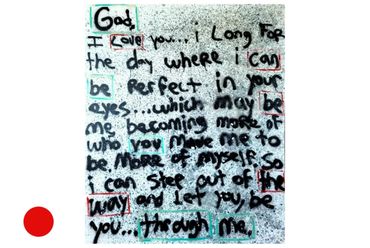 God,
I Love you... i Long For
the day where i can
be Perfect in your
eyes...which may be
me becoming more of
who you made me to
be More of myself. So
i can step out of the
way and Let you, be
you... through me.